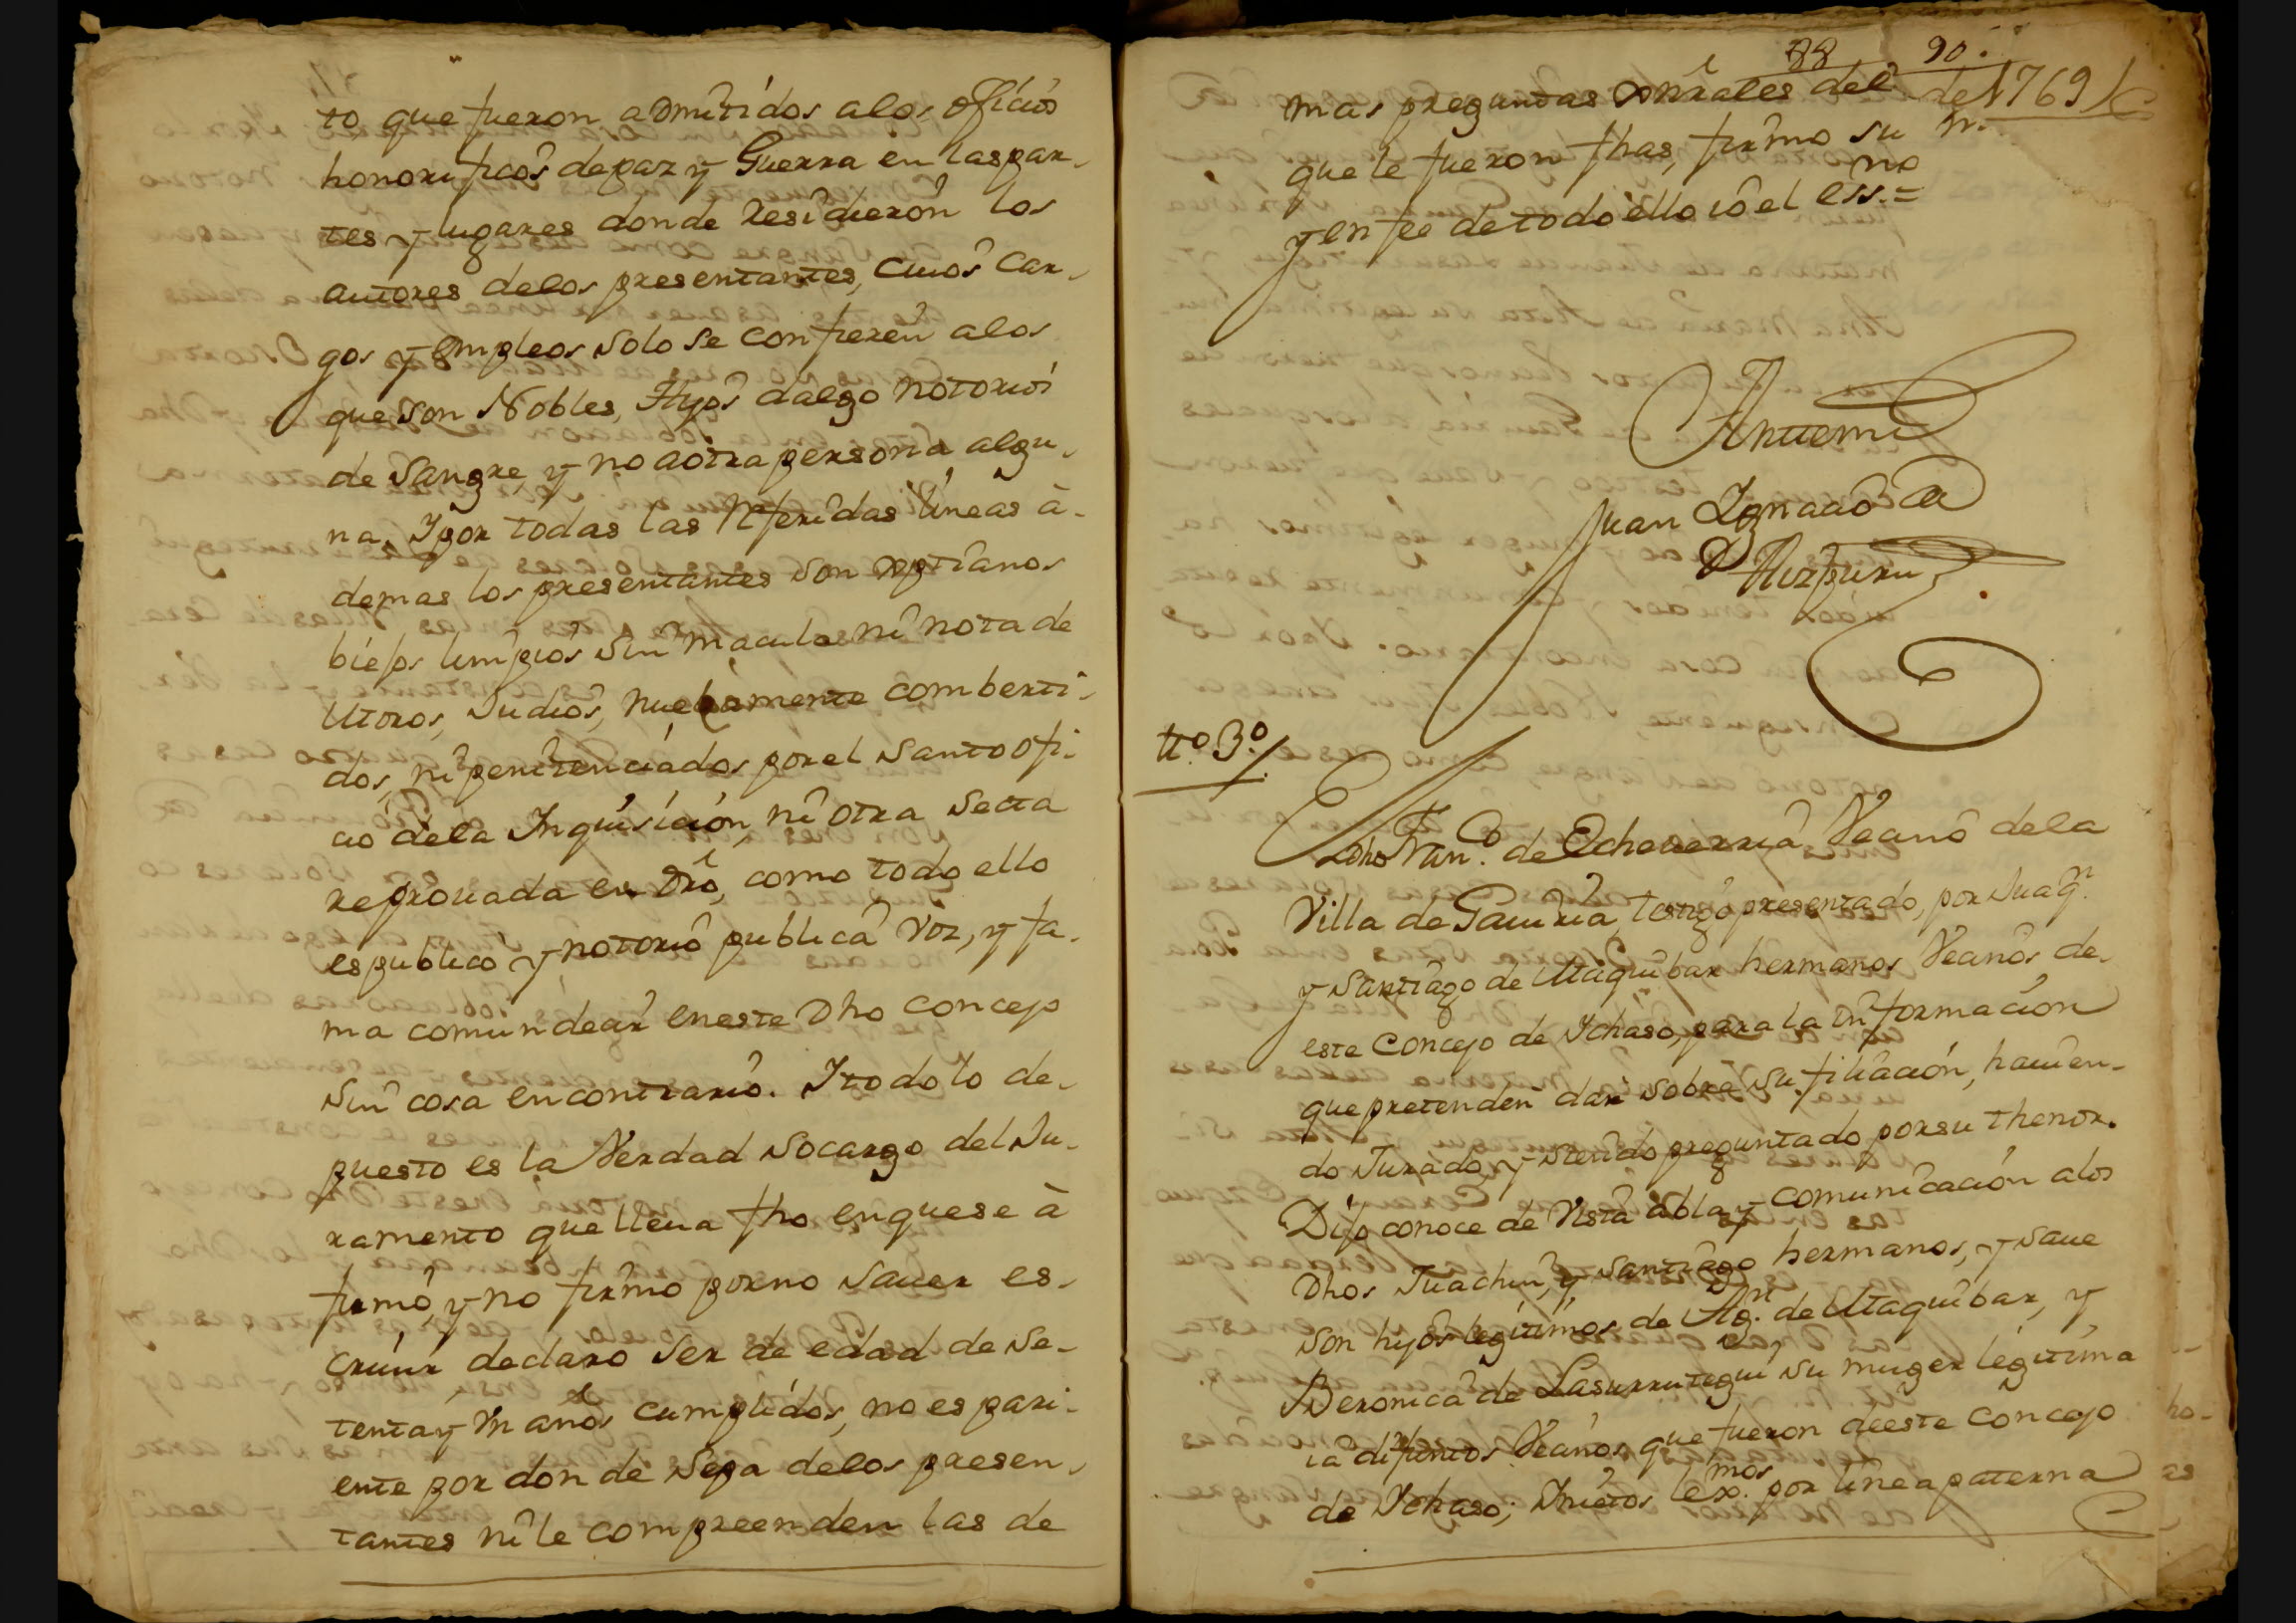 to, que fueron admitidos alos oficios
honorificos de paz y Guerra en las par-
tes y lugares donde residieron los
autores delos presentantes, cuios car-
gos y empleos solo se confieren alos
que son Nobles, Hijos dalgo notorios
de Sangre, y no aotra persona algu-
na, Ypor todas las referidas lineas à-
demas los presentantes son xptianos
biejos limpios sin macula ni nota de
Moros, Judios, nuebamente comberti-
dos, ni penitenciados por el Santo ofi-
cio dela Inquisicion, ni otra secta
reprouada en dro, como todo ello
es publico y notorio publica voz, y fa-
ma comun dezir eneste Dho concejo
sin cosa encontrario. Ytodo lo de-
puesto es la Verdad socargo del Ju-
ramento que lleua fho enque se à
firmó, y no firmo porno sauer es-
criuir declaro ser de edad de se-
tentay un años cumplidos, no es pari-
ente por don de sepa delos presen-
tantes ni le compreenden las de
88 90.
mas preguntas xenrales del de 1769
que le fueron fhas, firmo su m.
y en fee de todo ello io el ess.no =
Antemi
Juan Ignacio de
Aizpuru
tt.o 3.o
Dho Fran.co de Echeuerria Vecino dela
Villa de Gauiria, testigo presentado, por Juaq.n
y Santiago de Utaquibar hermanos Vecinos de-
este Concejo de Ychaso, para la informacion
que pretenden dar sobre su filiacion, hauien-
do Jurado, y siendo preguntado por su thenor.
Dijo conoce de Vista abla y comunicacion alos
Dhos Juachin, y Santiago hermanos, y saue
son hijos legitimos de Ag.n de Utaquibar, y
Beronica de Lasurrutegui su muger legitima
ia difuntos Vecinos que fueron deeste Concejo
de Ychaso; Nietos lex.mos por linea paterna